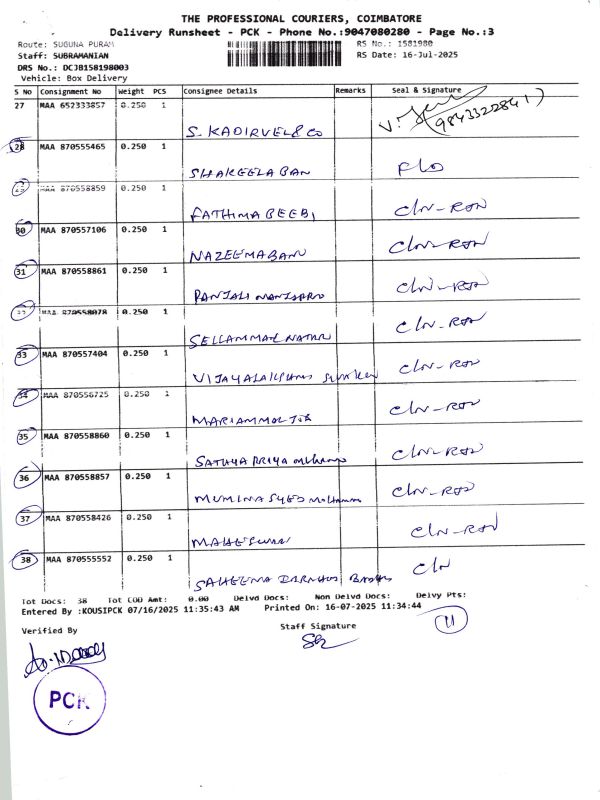 THE PROFESSIONAL COURIERS, COIMBATORE
Delivery Runsheet - PCK - Phone No.:9047080280 - Page No.:3
Route: SUGUNA PURAM RS No.: 1581980
Staff: SUBRAMANIAN RS Date: 16-Jul-2025
DRS No.: DCJB158198003
Vehicle: Box Delivery
S No Consignment No Weight PCS Consignee Details Remarks Seal & Signature
27 MAA 652333857 0.250 1
S. KADIRVEL & CO 9843322841
28 MAA 870555465 0.250 1
SHAKEELA BAN
MAA 870558859 0.250 1
FATHIMA BEEBI CLN-RTN
30 MAA 870557106 0.250 1
NAZEEMABANU CLN-RTN
31 MAA 870558861 0.250 1
CLN-RTN
MAA 870558078 0.250 1
SELLAMMAL NATAR CLN-RTN
33 MAA 870557404 0.250 1
CLN-RTN
34 MAA 870556725 0.250 1
CLN-RTN
35 MAA 870558860 0.250 1
SATHYA PRIYA CLN-RTN
36 MAA 870558857 0.250 1
MUMINA SYED CLN-RTN
37 MAA 870558426 0.250 1
MAHESWARI CLN-RTN
38 MAA 870555552 0.250 1
SAHEEMA CLN
Tot Docs: 38 Tot COD Amt: 0.00 Delvd Docs: Non Delvd Docs: Delvy Pts:
Entered By :KOUSIPCK 07/16/2025 11:35:43 AM Printed On: 16-07-2025 11:34:44
11
Verified By Staff Signature
PCK